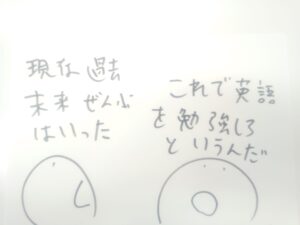 現在過去
未来ぜんぶ
はいった
これで英語
を勉強しろ
というんだ